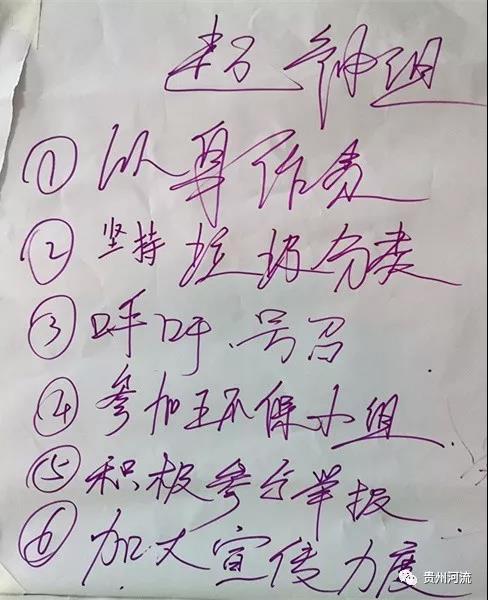 超神组
① 以身作责
② 坚持垃圾分类
③ 呼吁.号召
④ 参加环保小组.
⑤ 积极参与举报
⑥ 加大宣传力度
贵州河流